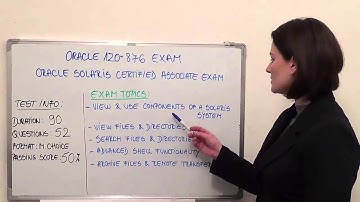 ORACLE 120-876 EXAM
ORACLE SOLARIS CERTIFIED ASSOCIATE EXAM
TEST INFO:
DURATION: 90
QUESTIONS: 52
FORMAT: M.CHOICE
PASSING SCORE: 50%
EXAM TOPICS:
- VIEW & USE COMPONENTS OF A SOLARIS
SYSTEM
- VIEW FILES & DIRECTORIES
- SEARCH FILES & DIRECTORIES
- ADVANCED SHELL FUNCTIONALITY
- ARCHIVE FILES & REMOTE TRANSFER